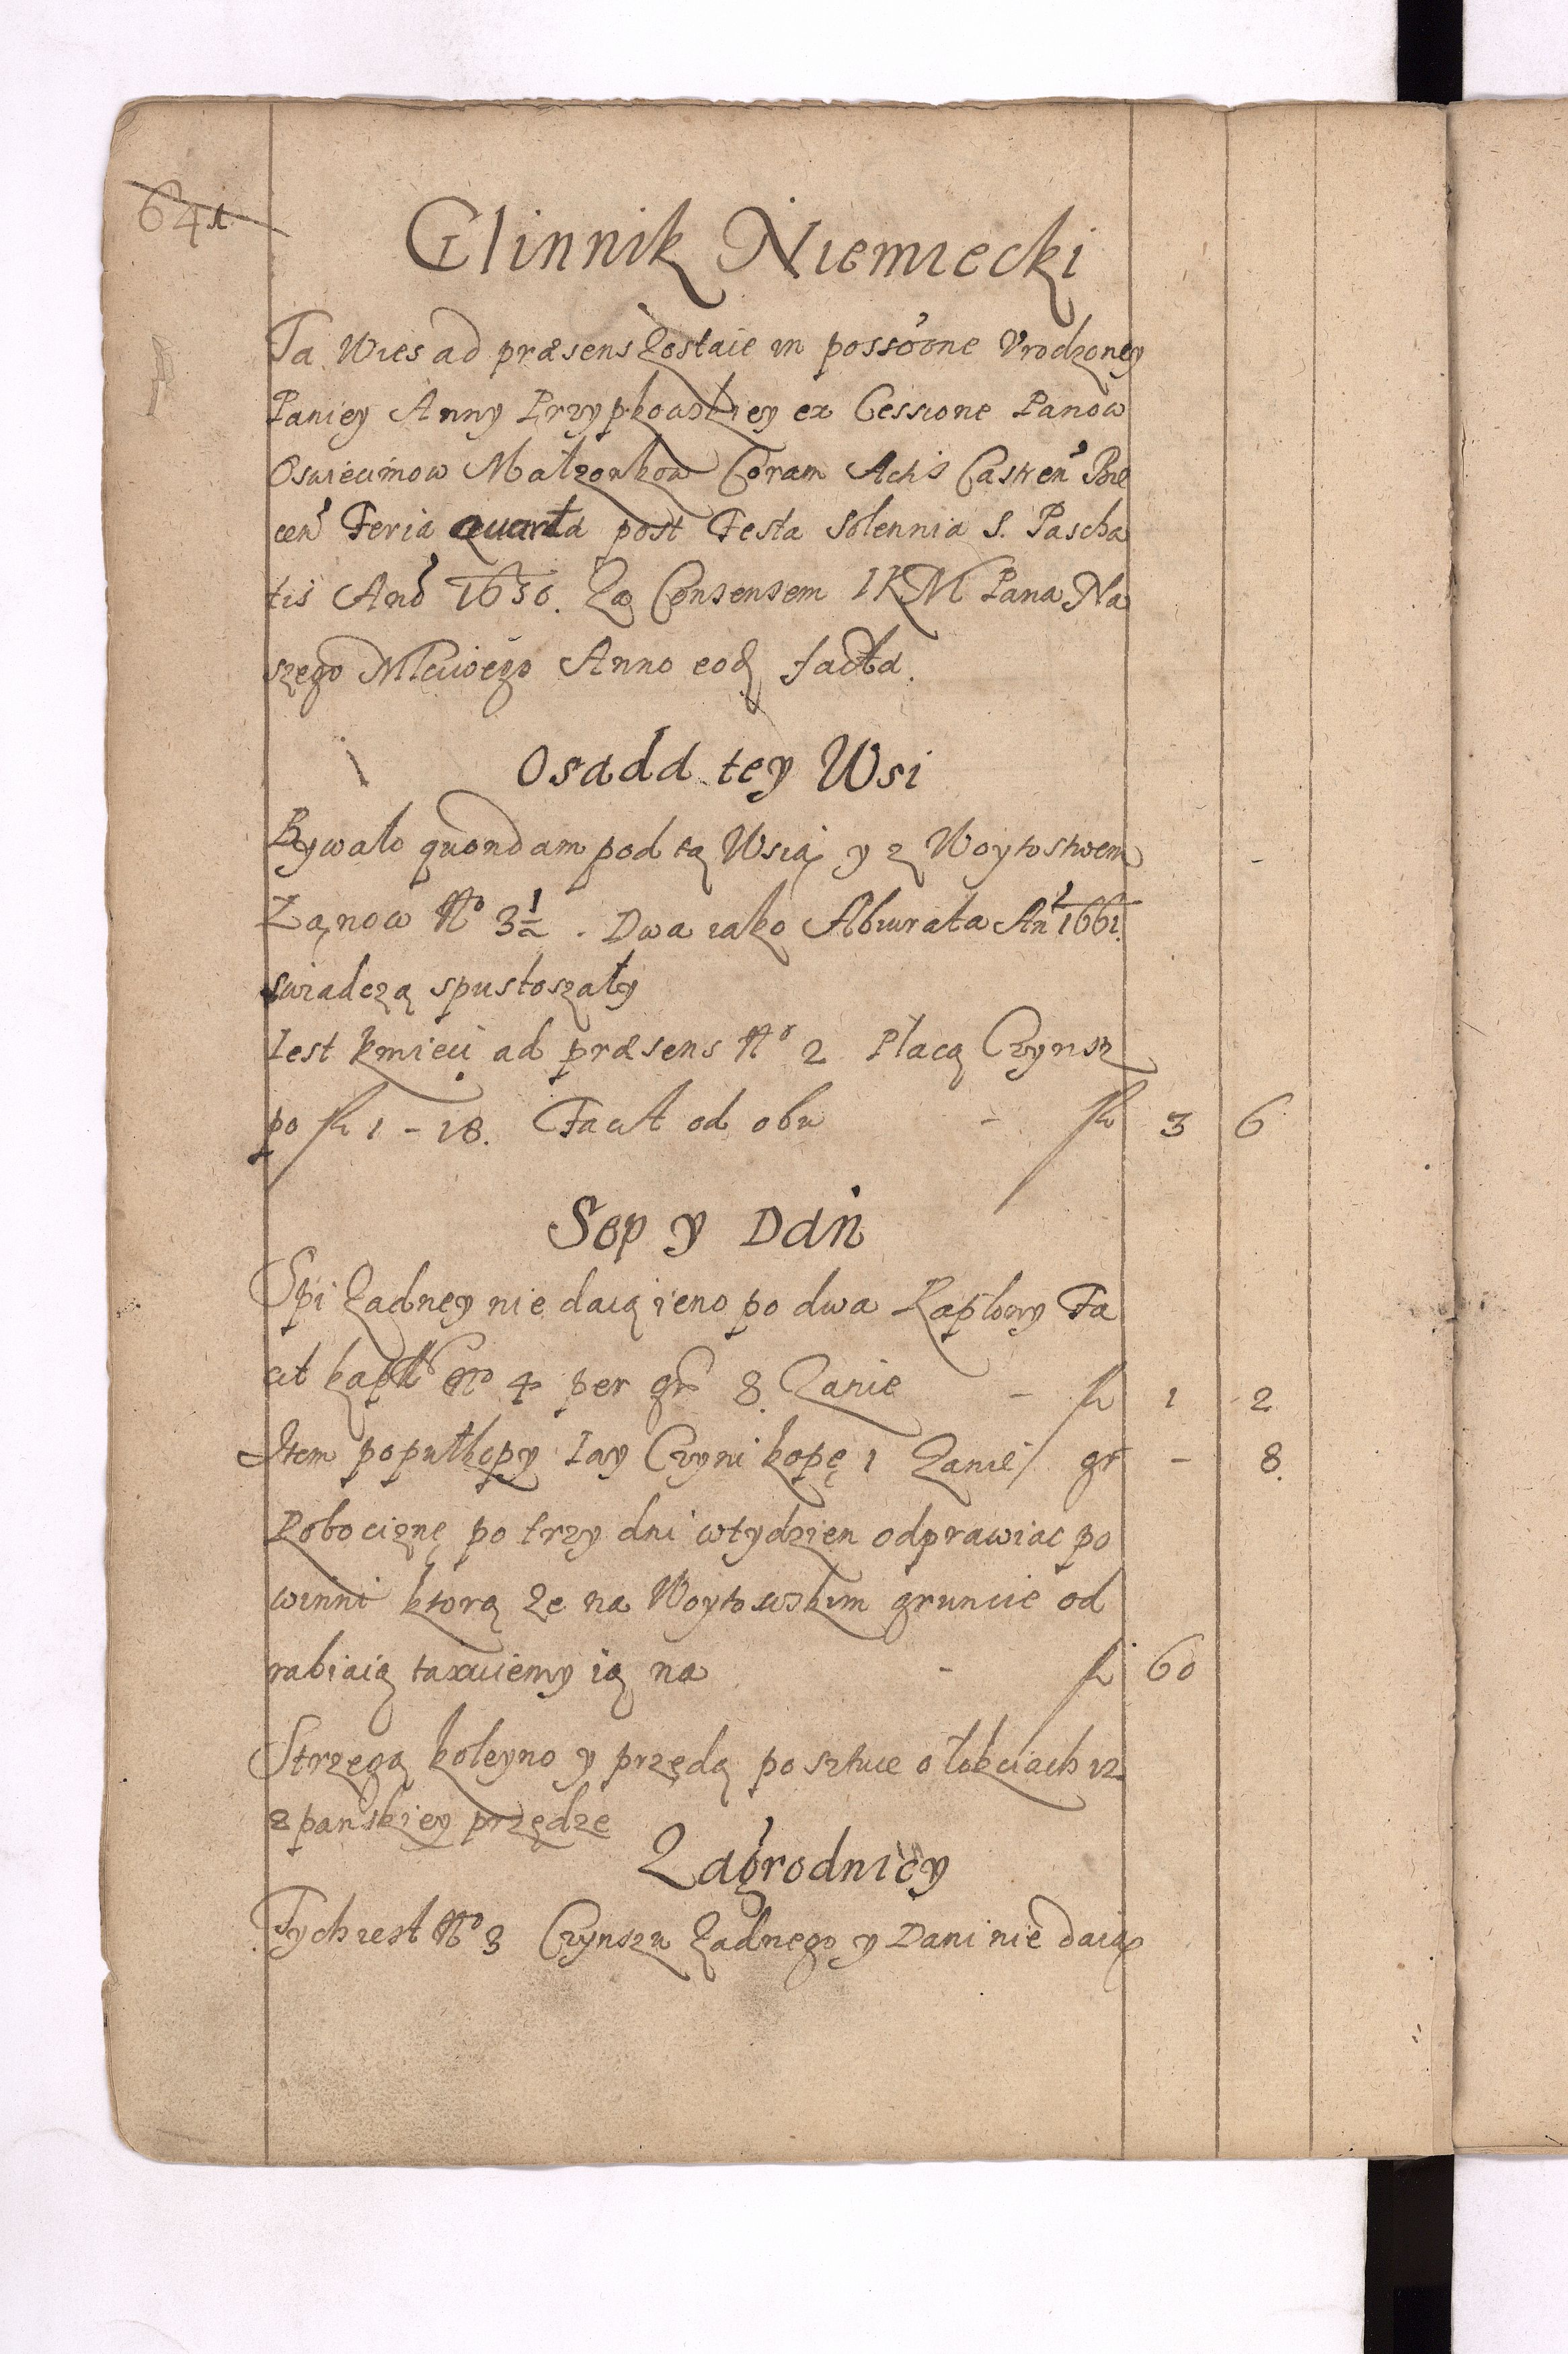 641
Glinnik Niemiecki
Ta Wies ad præsens Zostaie in possóone Vrodzoney
Paniey Anny Przypkowskiey ex Cessione Panow
Oswiecimow Małzonkow Coram Actis Castren Bie
cen Feria quarta post Festa Solennia S. Pascha
tis Anō 1650. Za Consensem IKM Pana Na
szego Młciwego Anno eod facta.
Osada tey Wsi
Bywało quondam pod tą Wsią y z Woytostwem
Łanow No 3 1/2. Dwa iako Abiurata An 1661.
swiadczą spustoszały
Iest kmieci ad præsens No 2 Płacą Czynsz
po fl 1 - 18. Facit od obu - fl 3 6
Sep y Dan
Spi Zadney nie daią ieno po dwa Kapłony Fa
cit kapł No 4 per gr 8 Zanie - fl 1 2
Item po pułkopy Iay Czyni kopę 1 Zanie / gr - 8.
Robociznę po trzy dni w tydzien odprawiac po
winni ktorą ze na Woytowskim gruncie od
rabiaią taxuiemy ią na - fl 60
Strzegą koleyno y przędą po sztuce o łokciach 12
z panskiey przędze
Zagrodnicy
Tych iest No 3 Czynszu Zadnego y Dani nie daią